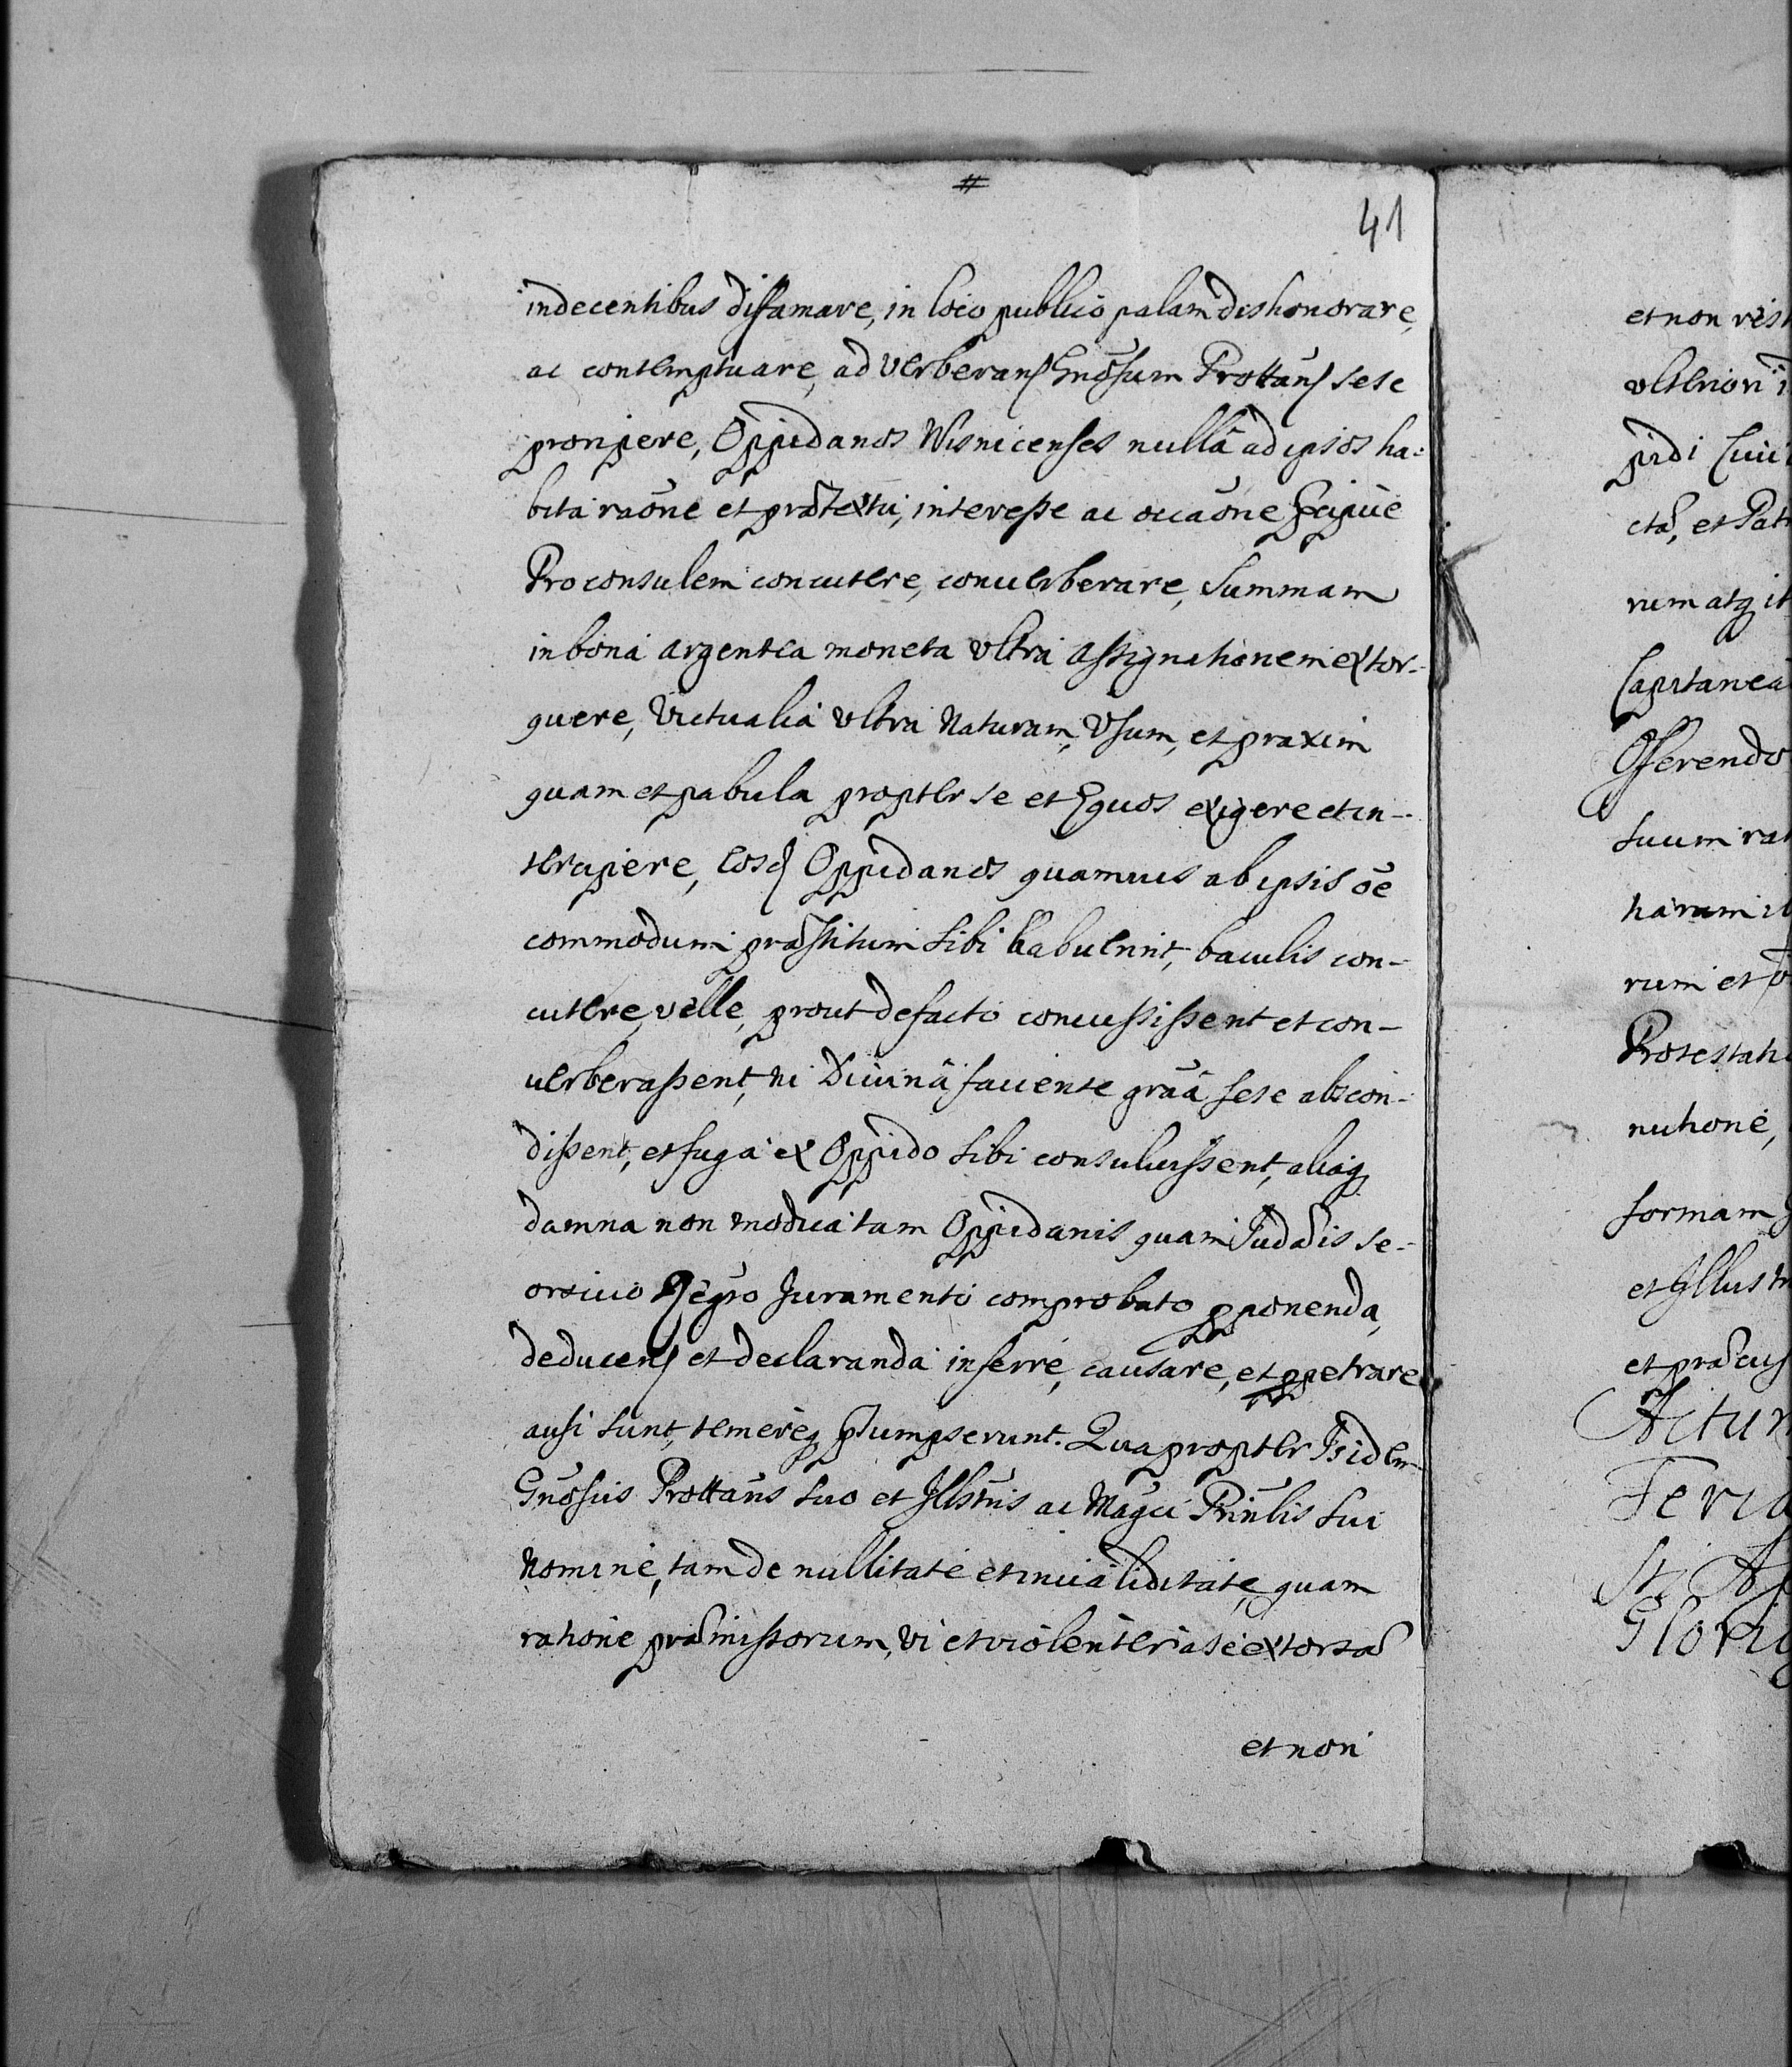 #
41
indecentibus diffamare, in loco publico palam dishonorare,
ac contemptuare, ad verberan Gnosum Prottan sese
proripere, Oppidanos Wisnicenses nullâ ad ipsos ha-
bita raõne et prætextu, interesse ac occaõne præcipuè
Proconsulem concutere, conuerberare, Summam
in bona argentea moneta vltra assignationem extor-
quere, Victualia vltra Naturam, Vsum, et praxim
quam et pabula propter se et Equos exigere et in-
tercipere, eosq Oppidanos quamuis ab ipsis oẽ
commodum præstitum sibi habuerint, baculis con-
cutere velle, prout de facto concussissent et con-
uerberassent, ni Diuinâ fauente grãâ sese abscon-
dissent, et fuga ex Oppido sibi consuluissent, aliaq
damna non modica tam Oppidanis quam Judæis se-
orsiuo Regro Juramento comprobato pponenda,
deducen et declaranda inferre, causare, et ppetrare
ausi sunt, temereq psumpserunt. Quapropter Isidem
Gnosus Prottans suo et Illstris ac Magci Prinlis sui
Nomine, tam de nullitate et inualiditate, quam
ratione præmissorum, vi et violenter a se extortæ
et non
et non rest
vlterior
pidi Ciui
ctæ, et Pat
rum atq it
Capitanea
Offerendo
suum rat
rum et
Protestati
nutione,
formam
et Illustr
et præcus
Actum
Feria
Glori